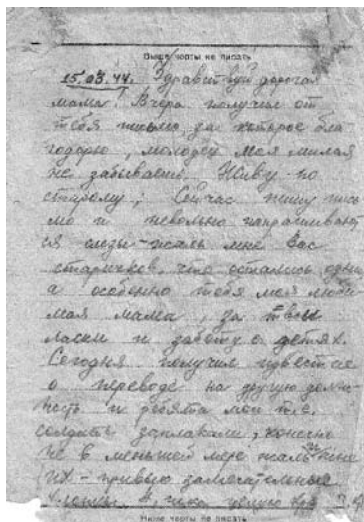 Выше черты не писать
15.03.44. Здравствуй дорогая
мама! Вчера получил от
тебя письмо, за которое бла
годарю, молодец моя милая
не забываешь. Живу по
старому; Сейчас пишу пись
мо и невольно напрашивают
ся слезы - жаль мне Вас
старичков, что остались одни
а особенно тебя моя люби
мая мама, за твои
ласки и заботу о детях.
Сегодня получил известие
о переводе на другую долж
ность и ребята мои т.е.
солдаты заплакали, конечно
не в меньшей мере жаль мне
их - привык замечательные
хлопцы. Я
Ниже черты не писать